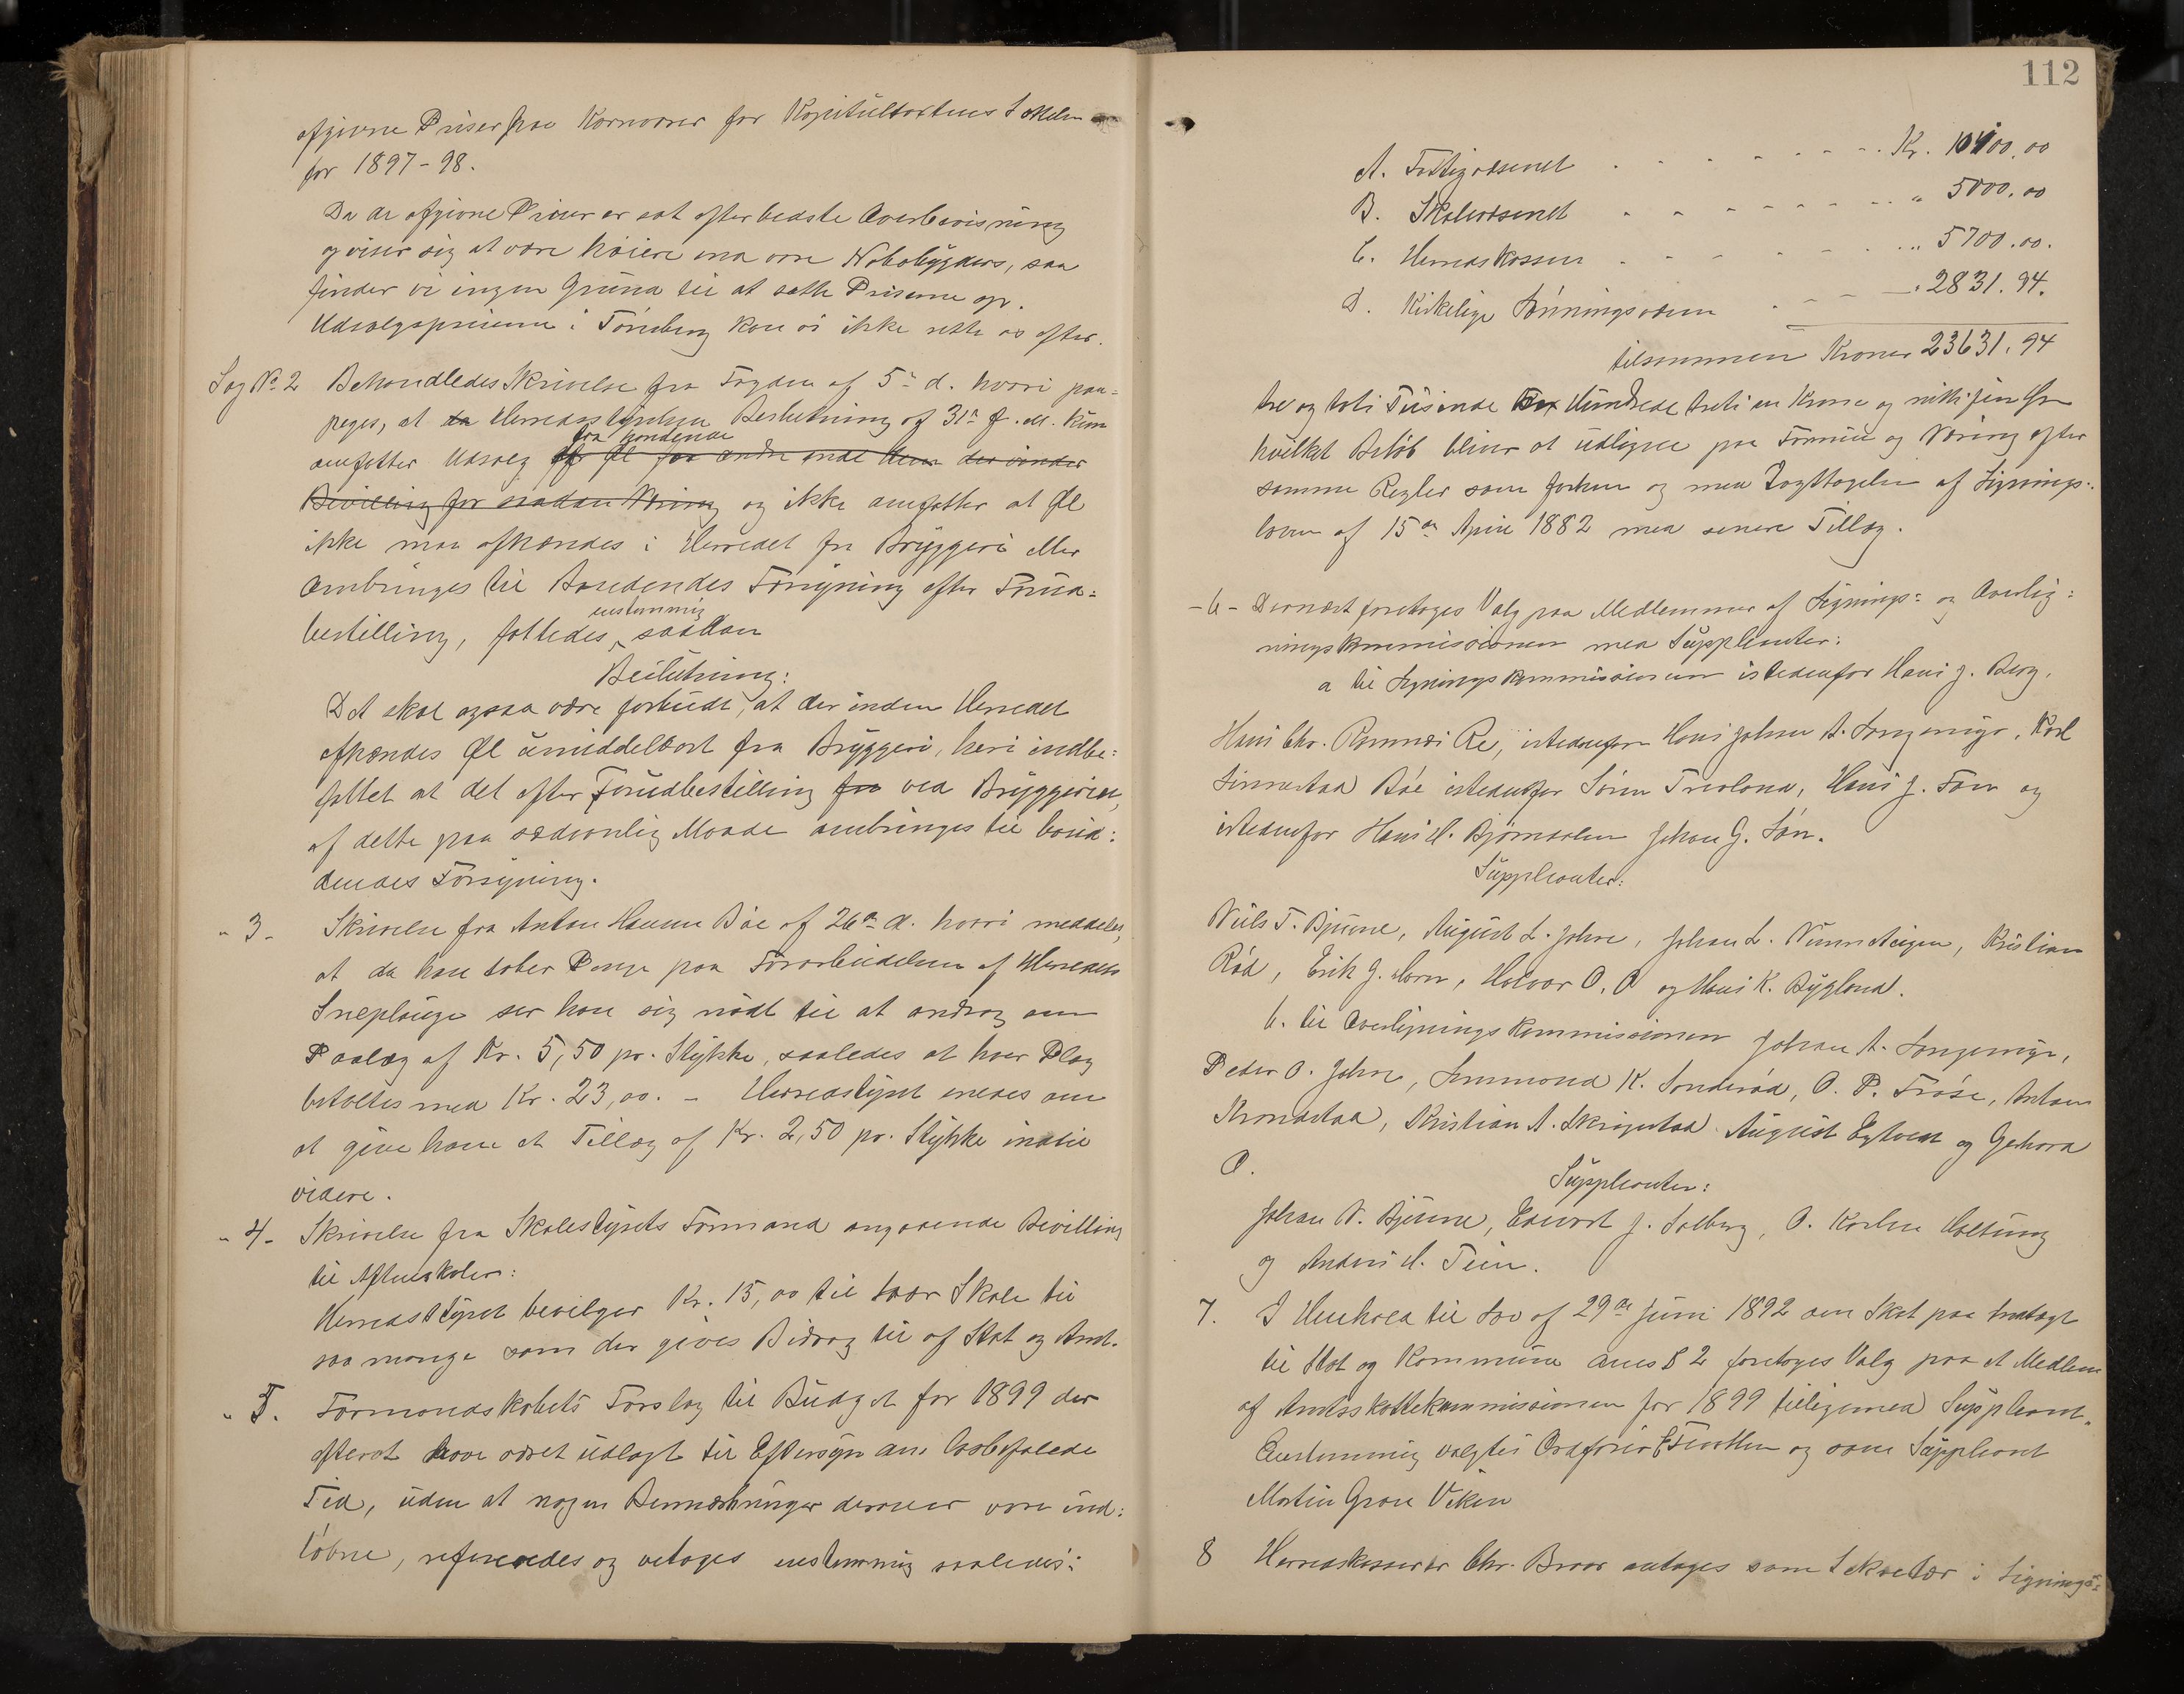 afgivne Priser paa Kornvarer for Kapitultaxtens
for 1897-98.
De af afgivne Priser er sat efter bedste Overbevisning
og viser sig at være høiere end vore Nabobygders, saa
finder vi ingen Grund til at sætte Priserne op.
Udsalgspriserne i Tønsberg kan vi ikke rette os efter.
Sag No 2 Behandledes Skrivelse fra Fogden af 5te d. hvori paa=
peges, at da Herredsstyrelsen Beslutning af 31te f. M. kun
fra handlende
omfatter Udsalg af Øl fra andre end dem der inder
Bevilling for saadan Næring og ikke omfatter at Øl
ikke maa afhændes i Herredet fra Bryggeri eller
ombringes til Forsyning efter Forud=
enstemmig
bestilling, fattedes saadan
Beslutning:
Det skal ogsaa være forbudt, at der inden Herredet
afhændes Øl umiddelbart fra Bryggeri, heri indbe=
fattet at det efter Forudbestilling fra ved Bryggeriet,
af dette paa sædvanlig Maade ombringes til
dendes Forsyning.
" 3 - Skrivelse fra Anton Hansen Bøe af 26de d. hvori meddeles,
at da han taber Penge paa Forarbeidelsen af Herredets
Sneplouge ser han sig nødt til at andrag om
Paalæg af Kr. 5,50 pr. Stykke, saaledes at hver Plog
betaltes med Kr. 23,00. - Herredsstyret enedes om
at give ham et Tillæg af Kr. 2,50 pr. Stykke indtil
videre.
" 4 - Skrivelse fra Skolestyrets Formand angaaende Bevilling
til Aftenskoler:
Herredsstyret bevilger Kr. 15,00 til hver Skole til
saa mange som der gives Bidrag til af Stat og Amt.
" 5. Formandskabets Forslag til Budget for 1899 der
efterat have været udlagt til Eftersyn den lovbefalede
Tid, uden at nogen Bemærkninger derover vare ind=
løbne, refereredes og vetoges enstemmig saaledes:
112
A. Fattigvæsenet - - - - - - - - Kr. 10100,00
B. Skolevæsenet - - - - - - - - " 5000,00
C. Herredskassen - - - - - - " 5700.00.
D. Kirkelige Lønningsvæsen - - - " 2831.94.
tilsammen Kroner 23631,94
tre og tyve Tusende Sex Hundrede treti en Krone og nitti fire Øre
hvilket Beløb bliver at udligne paa Formue og Næring efter
samme Regler som forhen og med Iagttagelse af Lignings=
loven af 15de April 1882 med senere Tillæg.
- 6 - Dernæst foretoges Valg paa Medlemmer af Lignings= og Overlig=
ningskommissionen med Suppleanter:
a til Ligningskommissionen istedenfor Hans J. Berg,
Hans Chr. Ramnæs Re, istedenfor Hans Johan A. Langemyr, Karl
Linnestad Bøe istedenfor Søren Treoland, Hans J. Føn og
istedenfor Hans H. Bjørndalen Johan G. Føn.
Suppleanter:
Niels T. Bjune, August L. Jahre, Johan L. Kristian
Rød, Erik J. Horn, Halvor O. Ø og Hans K. Bygland.
b. til Overligningskommissionen Johan A. Langemyr,
Peder O. Jahre, K. Sønderød, O. P. Frøse, Anton
Kristian A. August og Gerhard
Ø.
Suppleanter:
Johan N. Bjune, Edvart J. Solberg, O. Karlsen Holtung
og Anders H. Tein.
7. I Henhold til Lov af 29de Juni 1892 om Skat paa Indtægt
til Stat og Kommune dens § 2 foretoges Valg paa et Medlem
af Amtsskattekommissionen for 1899 tilligemed Suppleant.
Enstemmig valgtes Ordfører og som Suppleant
Martin Gran Viken
8 Herredskasserer Chr. Braar antages som Sekretær i Lignings=